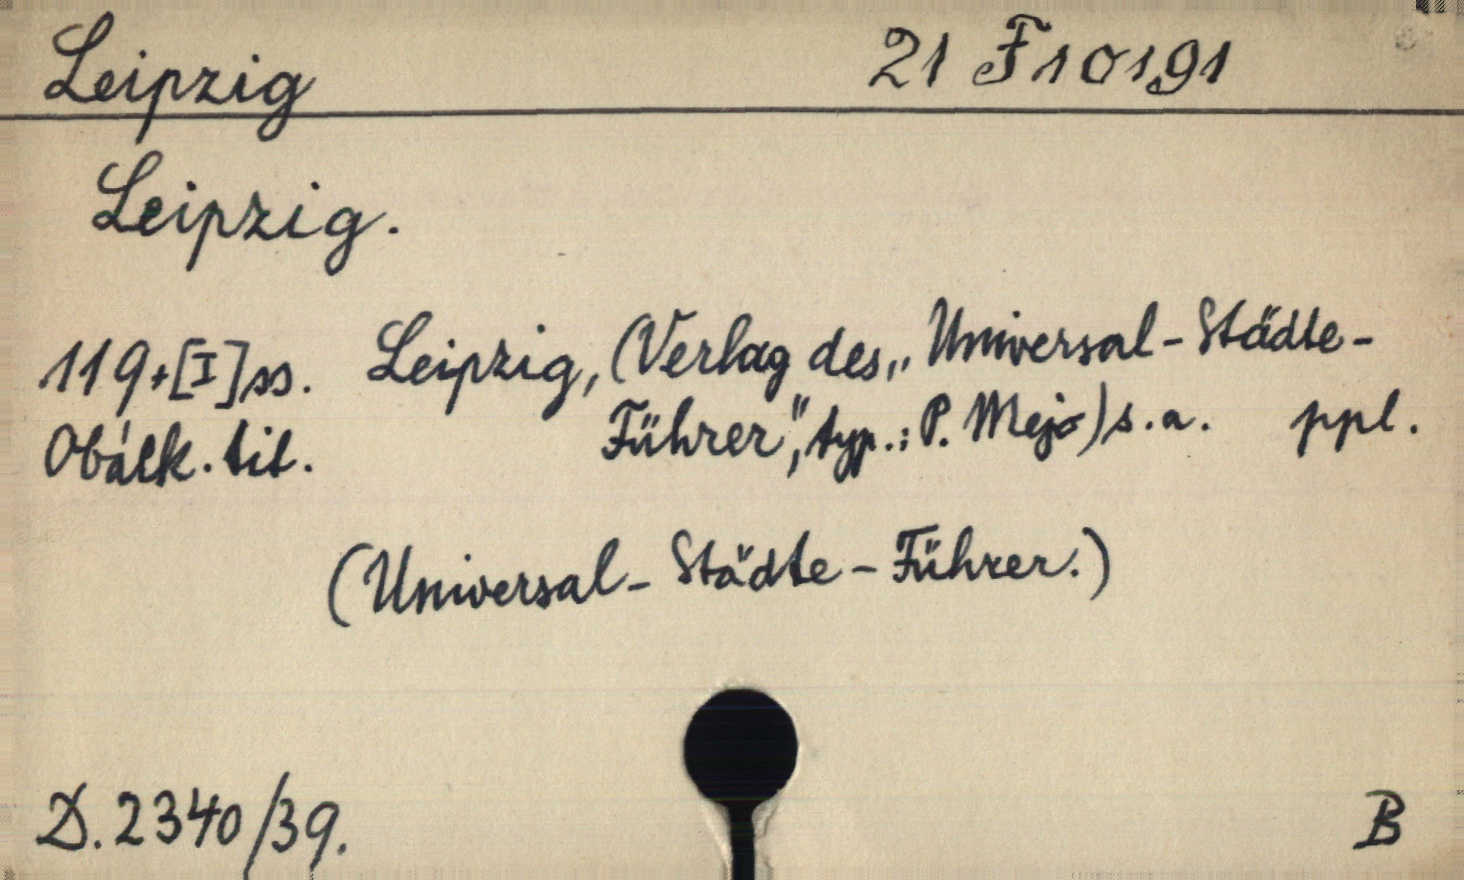 Leipzig 21 F 10191
Leipzig.
119+[I]ss. Leipzig, (Verlag des „Universal-Städte-
Obálk. tit. Führer“, typ.: P. Mejo) s.a. ppl.
(Universal-Städte-Führer.)
D. 2340/39. B